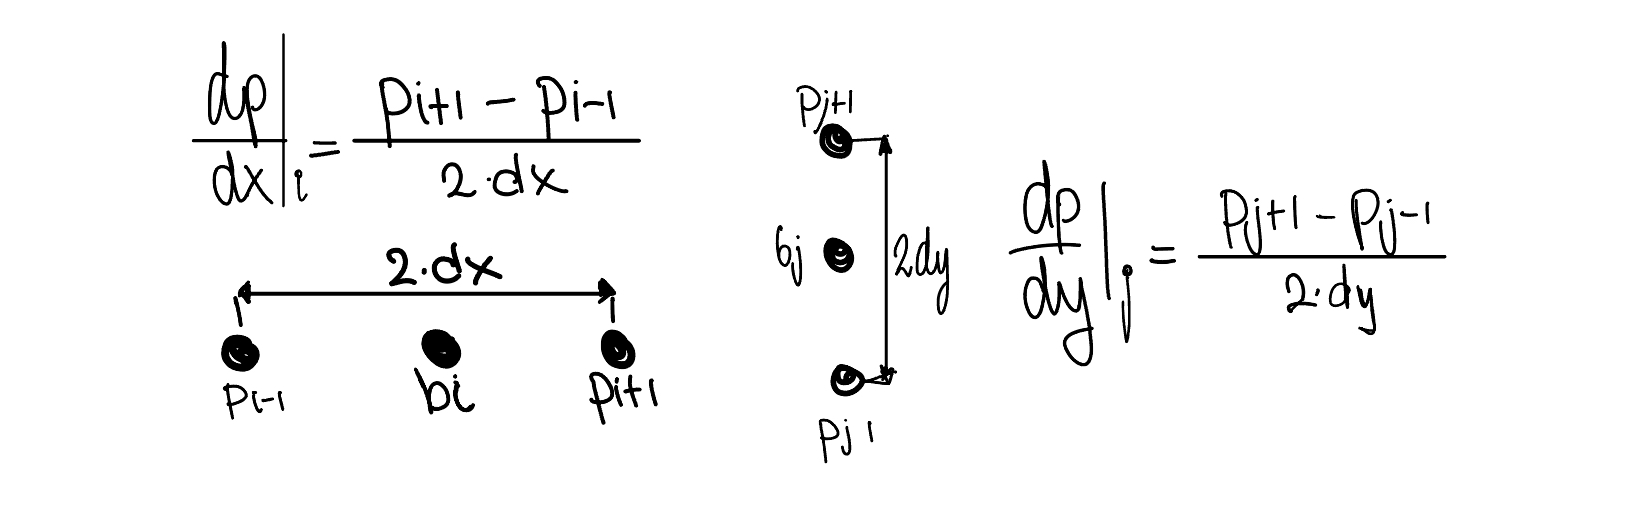 dp/dx|i = pi+1 - pi-1 / 2·dx
2·dx
pi-1 bi pi+1
pj+1
bj 2dy
pj 1
dp/dy|j = pj+1 - pj-1 / 2·dy